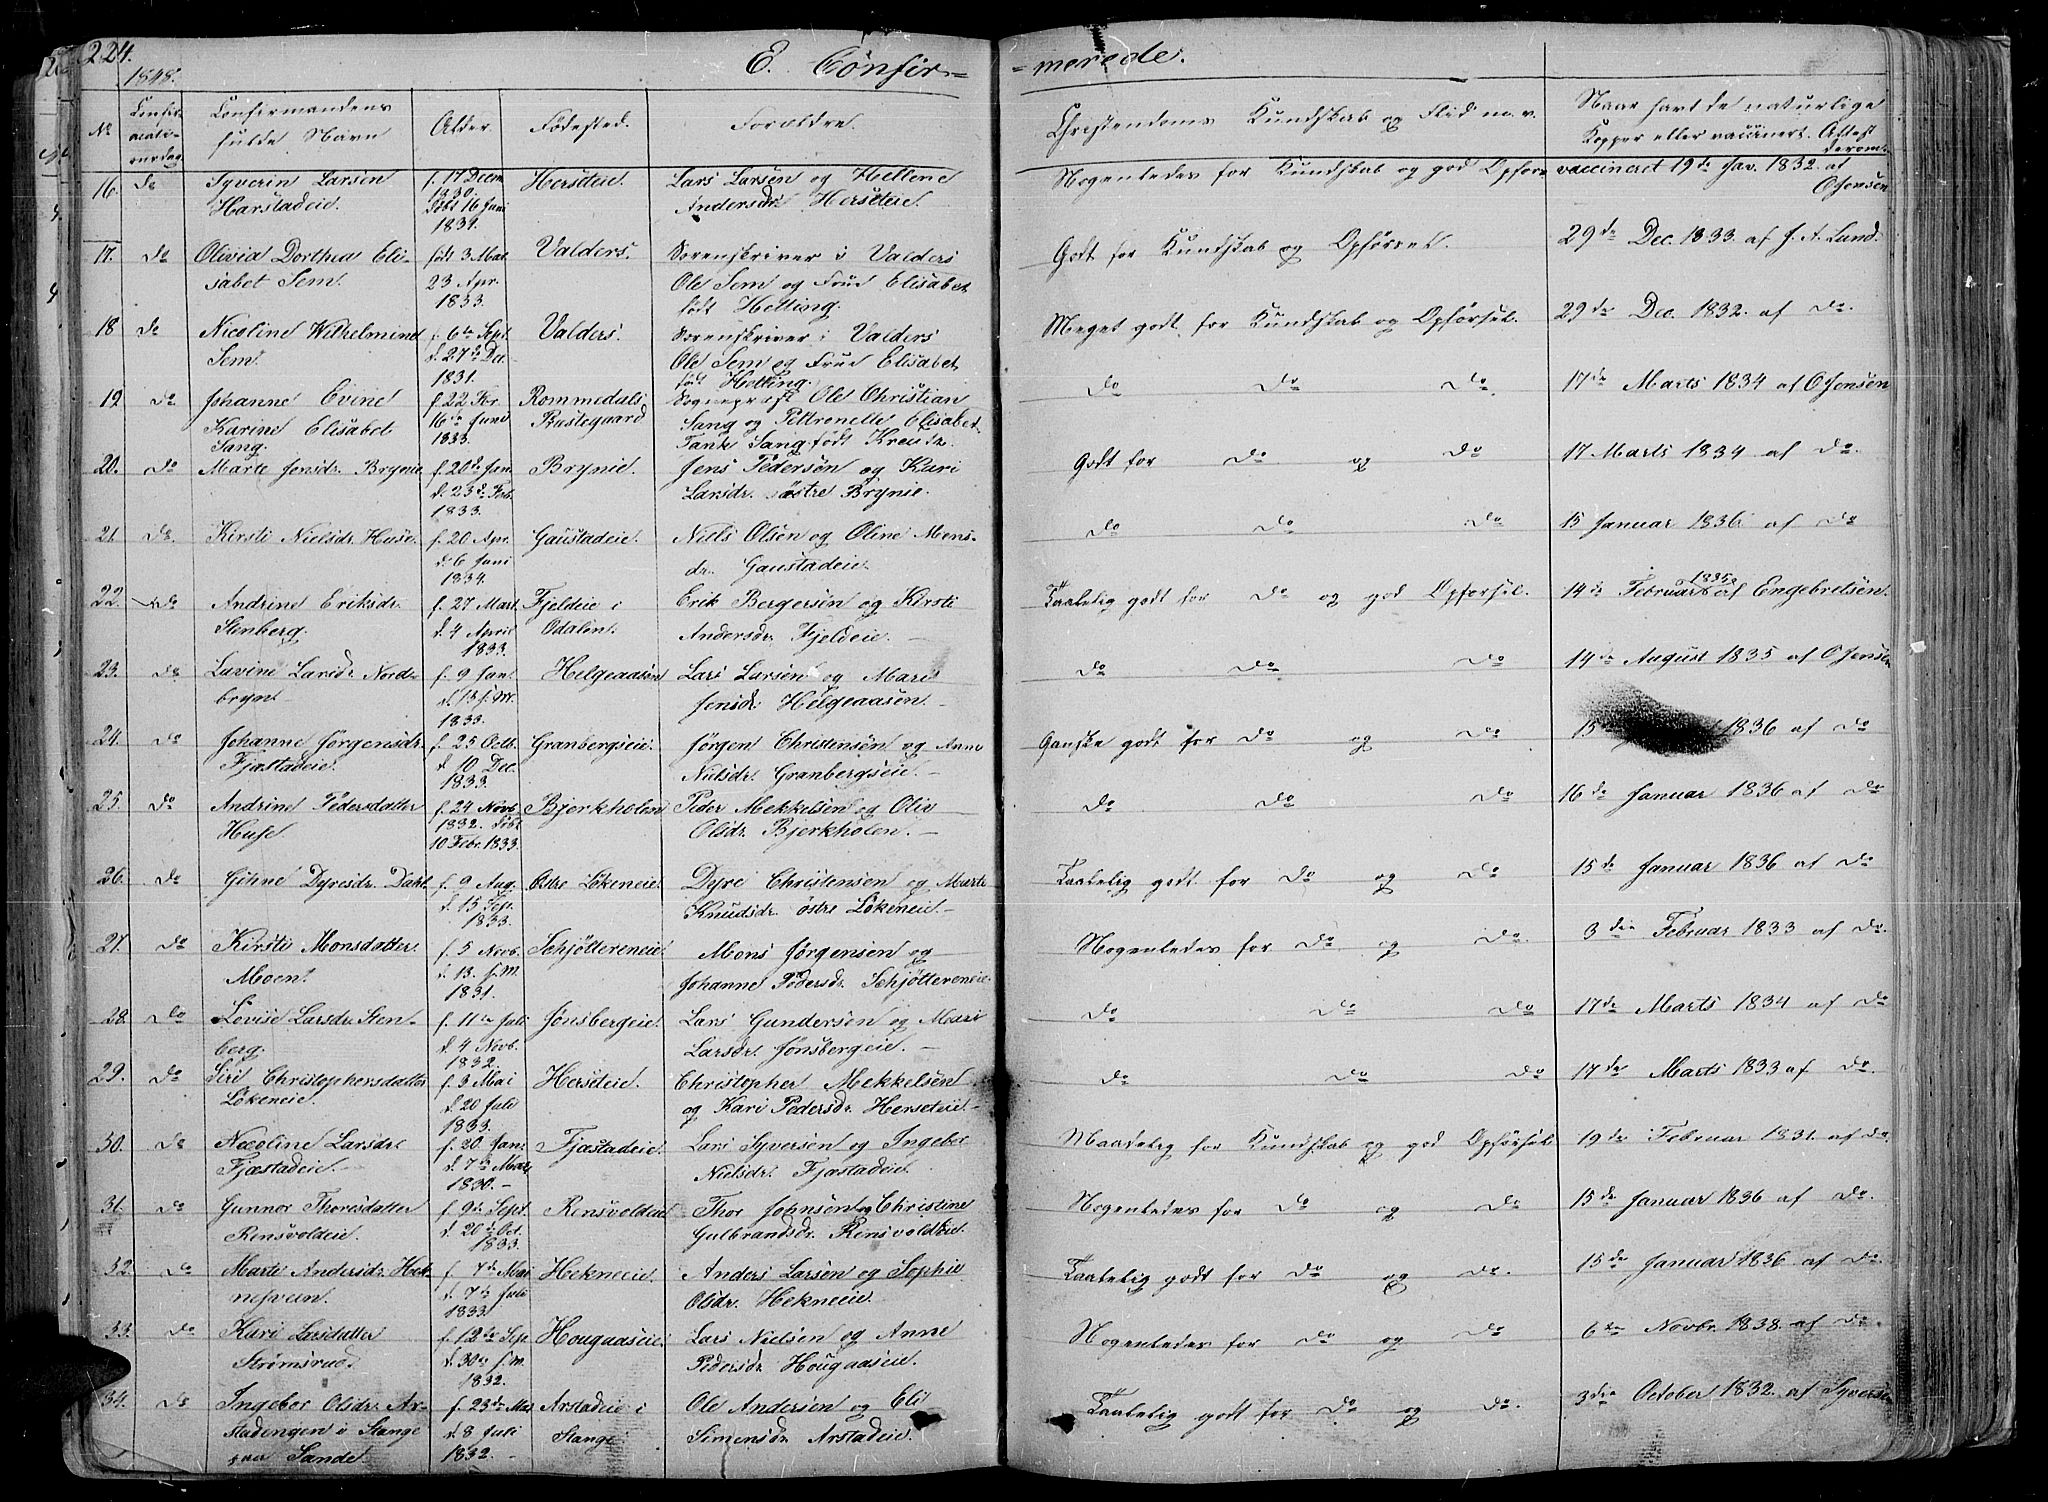 224.
1848.
E. Confir=
=merede.
No
Confir-
mati-
onsdag
Confirmandens
fulde Navn
Alder.
Födested.
Forældre.
Christendoms Kundskab og Flid m. v.
Naar havt de naturlige
Kopper eller vaccinert. Attest
derom.
16. do Syverin Larsen f. 17 Decm Herseteie. Lars Larsen og Hellene Nogenledes for Kundskab og god Opførs vaccineret 19de Jav. 1832 af
Harstadeie. 1830. Andersdr Herseteie. OJensen
döbt 16 Juni
1831.
17. do Olivia Dorthea Eli- född 3 Mai Valders. Sorenskriver i Valders Godt for Kundskab og Opførsel. 29de Dec. 1833. af J. A. Lund.
sabet Sem. 23 Apr. Ole Sem og Frue Elisabet
1833. født Hetting.
18 do Nicoline Wilhelmine f. 6te Sept. Valders. Sorenskriver i Valders Meget godt for Kundskab og Opførsel. 29de Dec. 1832. af do.
Sem. d. 27de Dec. Ole Sem og Frue Elisabet
1831. født Hetting.
19 do Johanne Evine f. 22 Fbr. Rommedals Sognepræst Ole Christian do do do 17de Marts 1834 af OJensen
Karine Elisabet 16de Juni Præstegaard Sang og Pettronelle Elisabet
Sang. 1833. Tank Sang født
20. do Marte Jensdr. Brynie f. 20de Jan. Brynie. Jens Pedersen og Kari Godt for do og do 17 Marts 1834 af do.
d. 23de Feb. Larsdr. östre Brynie.
1833.
21. do. Kirsti Nielsdr. Huse. f. 20 Apr. Gaustadeie. Niels Olsen og Oline Mons- do do do 15 Januar 1836 af do
d. 6 Juni dr. Gaustadeie.
1834.
22. do Andrine Eriksdr. f. 27 Mart Fjeldeie i Erik Bergersen og Kirsti Taalelig godt for do og god Opførsel. 14de Februar 1835 af Engebretsen.
Stenberg. d. 4 April Odalen. Andersdr. Fjeldeie.
1833.
23. do Lavine Larsdr. Nord- f. 9 Jan. Helgeaasen Lars Larsen og Mari do do do 14de August 1835 af OJensen
bryn d. 13 f. M. Jensdr Helgeaasen
1833.
24. do Johanne Jørgensdr. f. 25 Octb. Granbergseie. Jørgen Christensen og Anne Ganske godt for do og do 15 1836 af do
Fjæstadeie. d. 10 Dec. Nielsdr. Granbergseie.
1833.
25. do Andrine Pedersdatter f. 24 Novb. Bjerkholen Peder Mekkelsen og Oliv do do do 16de Januar 1836 af do
Huse 1832. döbt Olsdr. Bjerkholen.
10 Febr. 1833.
26. do Gihne Dyresdr. Dahl. f. 9 Aug. Östre Lökeneie. Dyre Christensen og Marte Taalelig godt for do og do 15de Januar 1836 af do
d. 15 Sep. Knudsdr. östre Lökeneie.
1833.
27. do Kirsti Monsdatter f. 5 Novb. Schjøttereneie. Mons Jørgensen og Nogenledes for do og do. 3die Februar 1833 af do.
Moen. d. 13. f. M. Johanne Pedersdr. Schjøttereneie
1831.
28. do Lovise Larsdr. Sten- f. 11te Juli Jønsbergeie. Lars Gundersen og Mari do do do 17de Marts 1834 af do
berg. d. 4 Novb. Larsdr. Jønsbergeie.
1832.
29. do Siri Christophersdatter f. 3 Mai Herseteie. Christopher Mekkelsen do do do 17de Marts 1833 af do.
Lökeneie. d. 20 Juli og Kari Pedersdr. Herseteie
1833.
30. do Nicoline Larsdr. f. 20. Jan. Fjæstadeie. Lars Syversen og Ingebor Maadelig for Kundskab og god Opførsel 19de Februar 1831. af do.
Fjæstadeie. d. 7de Mar. Nielsdr. Fjæstadeie.
1830.
31. do Gunnor Thorsdatter f. 9de Sept. Rensvoldeie Thor Johnsen og Christine Nogenledes for do og do 15de Januar 1836 af do.
Rensvoldeie. d. 20de Oct. Gulbrandsdr. Rensvoldeie.
1833.
32. do Marte Andersdr. Hek- f. 7de Mai Hekneeie. Anders Larsen og Sophie Taalelig godt for do og do. 15de Januar 1836 af do.
nesveen. d. 7de Juli Olsdr. Hekneeie.
1833.
33. do Kari Larsdatter f. 12te Sep. Hougaaseie. Lars Nielsen og Anne Nogenledes for do og do 6te Novbr. 1838. af do.
Strømsrud. d. 30te f. M. Pedersdr. Hougaaseie.
1832.
34. do Ingebor Olsdr. Ar- f. 23de Mai Arstadeie i Ole Andersen og Eli Taalelig godt for do og do. 3die October 1832. af Syversen
stadengen i Stange d. 8 Juli Stange Simensdr. Arstadeie.
paa Sande. 1832.